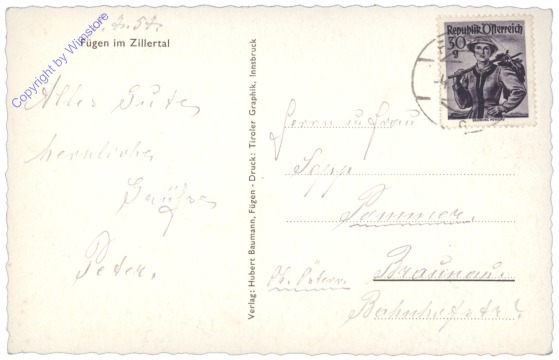 Fügen im Zillertal
Copyright by Wimstore
Alles Gute,
herzliche
Grüße
Peter.
Verlag: Hubert Baumann, Fügen - Druck: Tiroler Graphik, Innsbruck
Republik Österreich
30
g
Herrn u. Frau
Sepp
Pammer.
Braunau.
Bahnhofstr.